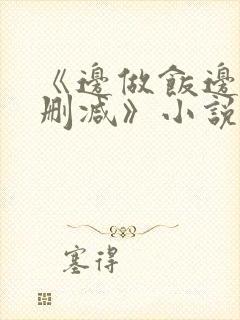 《邊做飯邊
刪減》小說
塞得